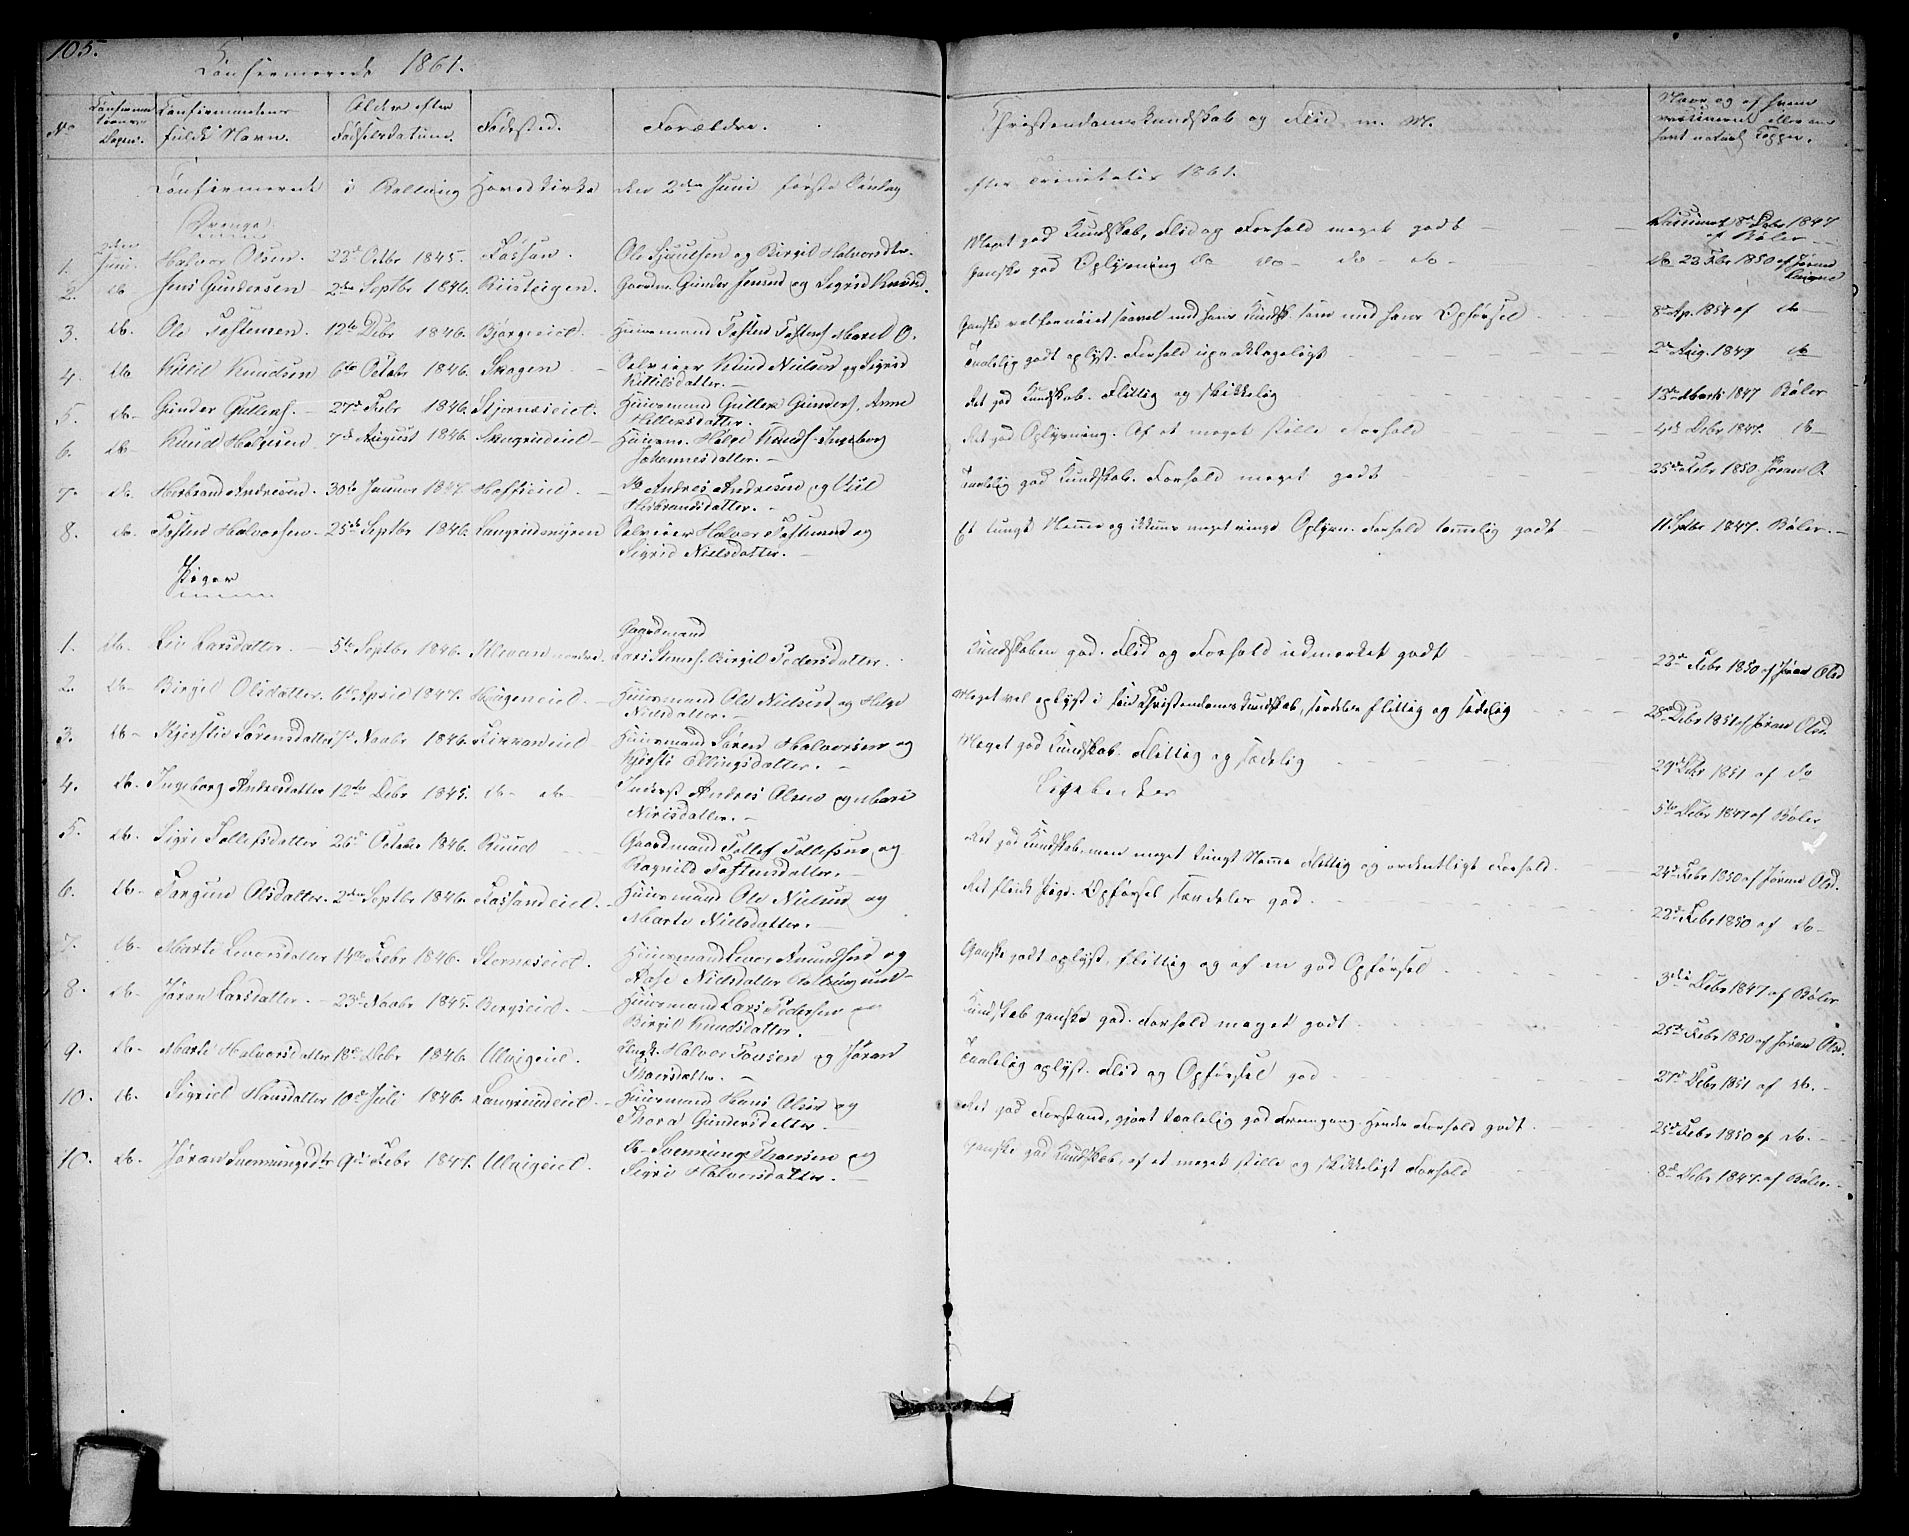 105.
Confirmerede 1861.
No
Confirmantens fulde Navn.
Alder efter Fødselsdatum.
Fødested.
Forældre.
Christendomskundskab og Flid m. M.
Naar og af hvem vaccineret eller om havt naturl. Kopper.
Confirmerede i Rollaug Hovedkirke den 2den Juni første Søndag efter Trinitatis 1861.
Drenge
1. 2den Juni. Halvor Olsen. 22de Octbr 1845. Fossan. Ole Sjuulsen og Birgit Halvorsdtr. Meget god Kundskab, Flid og Forhold meget godt 1847 af Bøler
2. do Jens Gundersen 2den Septbr 1846. Gaardm. Gunder Jensen og Sigrid Knudsd. Ganske god Oplysning do do do do do 23 Febr 1850 af Jøran
3. do. Ole Tostensen. 12te Debr 1846. Bjørgeeiet Huusmand Tosten Tostens. Marit O. Ganske vel fornøiet saavel med hans Kundsk. som med hans Opførsel 8de Ap. 1854 af do
4. do. Kittil Knudsen 6te Octobr 1846. Skogen Selveier Knud Nielsen og Sigrid Kittilsdatter. Taalelig godt oplyst. Forhold upaaklageligt 2de Aug. 1849 do
5. do Gunder Gullers. 27de Febr 1846. Stjerneseiet. Huusmand Guller Gunders. Anne Ret god Kundskab. Flittig og skikkelig 13de Marts 1847 Bøler
6. do Knud Helgesen 7de August 1846. Huusm. Helge Knuds. Ingeborg Johannesdatter. Ret god Oplysning. Af et meget stille Forhold 4de Debr 1847. do
7. do. Herbrand Andresen. 30te Januar 1847. Do Andres Andresen og Herbransdatter. Taalelig god Kundskab. Forhold meget godt 25de Febr 1850 Jøran O.
8. do. Tosten Halvorsen. 25de Septbr 1846. Selveier Halvor Tostensen og Sigrid Nielsdatter. Et tungt Nemme og ikkuns meget ringe Oplysn. Forhold temmelig godt 11. Febr 1847. Bøler.
Piger
1. do. Liv Larsdatter. 5te Septbr 1846. Gaardmand Birgit Pedersdatter. Kundskaben god. Flid og Forhold udmærket godt 22de Febr 1850 af Jøran Olsd
2. do Birgit Olsdatter 6te April 1847. Haugeneiet. Huusmand Ole Nielsen og Helge Nielsdatter. Meget vel oplyst i sin Christendomskundskab, særdeles flittig og sædelig 28de Debr 1851 af Jøran Olsd.
3. do Kjersti Sørensdatter Novbr 1846. Huusmand Søren Halvorsen og Kjersti Ellingsdatter. Meget god Kundskab. Flittig og sædelig 29de Debr 1851 af do
4. do. Ingeborg Andresdatter 12te Debr 1845. do do Inderst Andres Olsen og Mari Nirisdatter. Ligeledes 5te Debr 1847 af Bøler
5. do. Sigri Tollefsdatter 26de October 1846. Ruud Gaardmand Tollef Tollefsen og Ragnild Tostensdatter. Ret god Kundskab, men meget tungt Nemme Flittig og ordentligt Forhold. 24de Febr 1850 af Jøran Olsd.
6. do Torgun Olsdatter. 2den Septbr 1846. Fossandeiet. Huusmand Ole Nielsen og Marte Nielsdatter. Ret flink Pige. Opførsel særdeles god 22de Febr 1850 af do
7. do Marte Levorsdatter 14de Febr 1846. Huusmand Levor Amundsen og Aase Nielsdatter Ganske godt oplyst, flittig og af en god Opførsel 3die Debr 1847 af Bøler
8. do. Jøran Larsdatter. 23de Novbr 1845. Bergseiet. Huusmand Lars Pedersen og Birgit Knudsdatter. Kundskab ganske god. Forhold meget godt 25de Febr 1850 af Jøran Olsd.
9. do. Marte Halvorsdatter 18de Debr 1846. Ulvigeiet. Halvor Tovsen og Jøran Thorsdatter. Taalelig oplyst. Flid og Opførsel god 27de Debr 1851 af do.
10. do. Sigrid Hansdatter 10de Juli 1846. Langrudeiet. Huusmand Hans Olsen og Thora Gundersdatter. Ret god Forstand, gjort taalelig god Fremgang. Hendes Forhold godt 25de Febr 1850 af do.
10. do. Jøran Svenningsdtr 9de Febr 1847. Ulvigeiet. do Svenning Thorsen og Sigri Halvorsdatter. Ganske god Kundskab, af et meget stille og skikkeligt Forhold 8de Debr 1847. af Bøler.